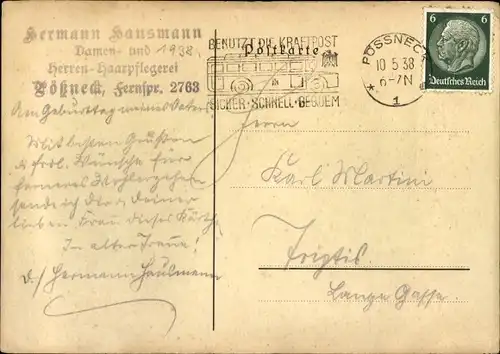 Hermann Hausmann
Damen- und 1938.
Herren-Haarpflegerei
Pößneck, Fernspr. 2763
Am Geburtstag meines Vaters
Mit besten Grüßen
& frdl. Wünsche für
ferneres Wohlergehen
sende ich dir & deiner
lieben Frau dieses Kärtch.
In alter Treue!
Hermann Hausmann
BENUTZT DIE KRAFTPOST
Postkarte
SICHER·SCHNELL·BEQUEM
PÖSSNECK
10.5.38
6-7N
* 1
6 6
Deutsches Reich
Herrn
Karl Martini
Triptis
Lange Gasse.